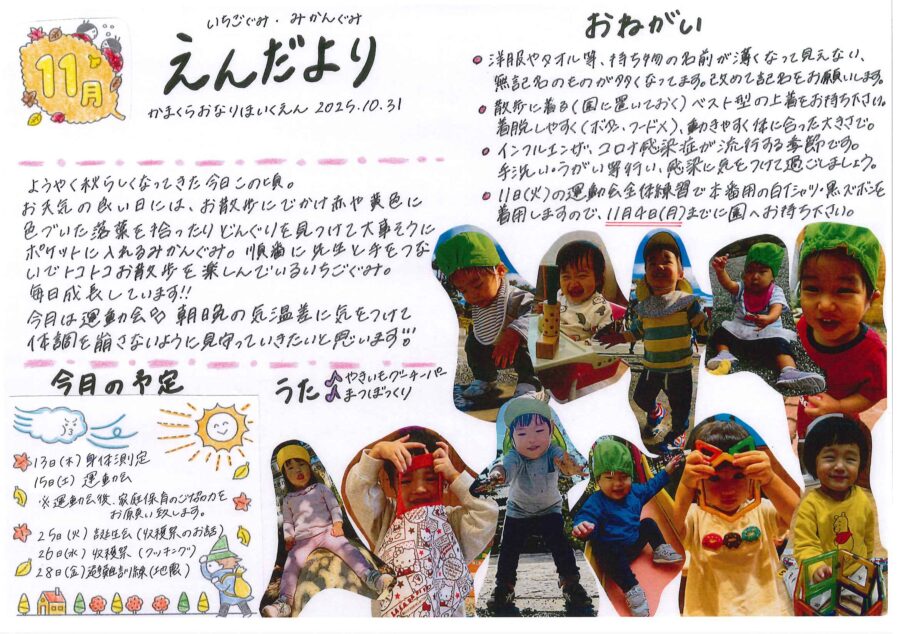 いちごぐみ・みかんぐみ
11月
えんだより
かまくらおなりほいくえん 2025.10.31
ようやく秋らしくなってきた今日この頃。
お天気の良い日には、お散歩にでかけ赤や黄色に
色づいた落葉を拾ったりどんぐりを見つけて大事そうに
ポケットに入れるみかんぐみ。順番に先生と手をつな
いでトコトコお散歩を楽しんでいるいちごぐみ。
毎日成長しています!!
今月は運動会 朝晩の気温差に気をつけて
体調を崩さないように見守っていきたいと思います!!
おねがい
洋服やタオル等、持ち物の名前が薄くなって見えない、
無記名のものが多くなってます。改めて記名をお願いします。
散歩に着る(園に置いておく)ベスト型の上着をお持ち下さい。
着脱しやすく(ボタン、フード×)、動きやすく体に合った大きさで。
インフルエンザ、コロナ感染症が流行する季節です。
手洗い・うがい等行い、感染に気をつけて過ごしましょう。
11日(火)の運動会全体練習で本番用の白Tシャツ・黒ズボンを
着用しますので、11月4日(月)までに園へお持ち下さい。
今月の予定
13日(木)身体測定
15日(土)運動会
※運動会後、家庭保育のご協力を
お願い致します。
25日(火)誕生会(収穫祭のお話)
26日(水)収穫祭(クッキング)
28日(金)避難訓練(地震)
うた♪やきいもグーチーパー
♪まつぼっくり